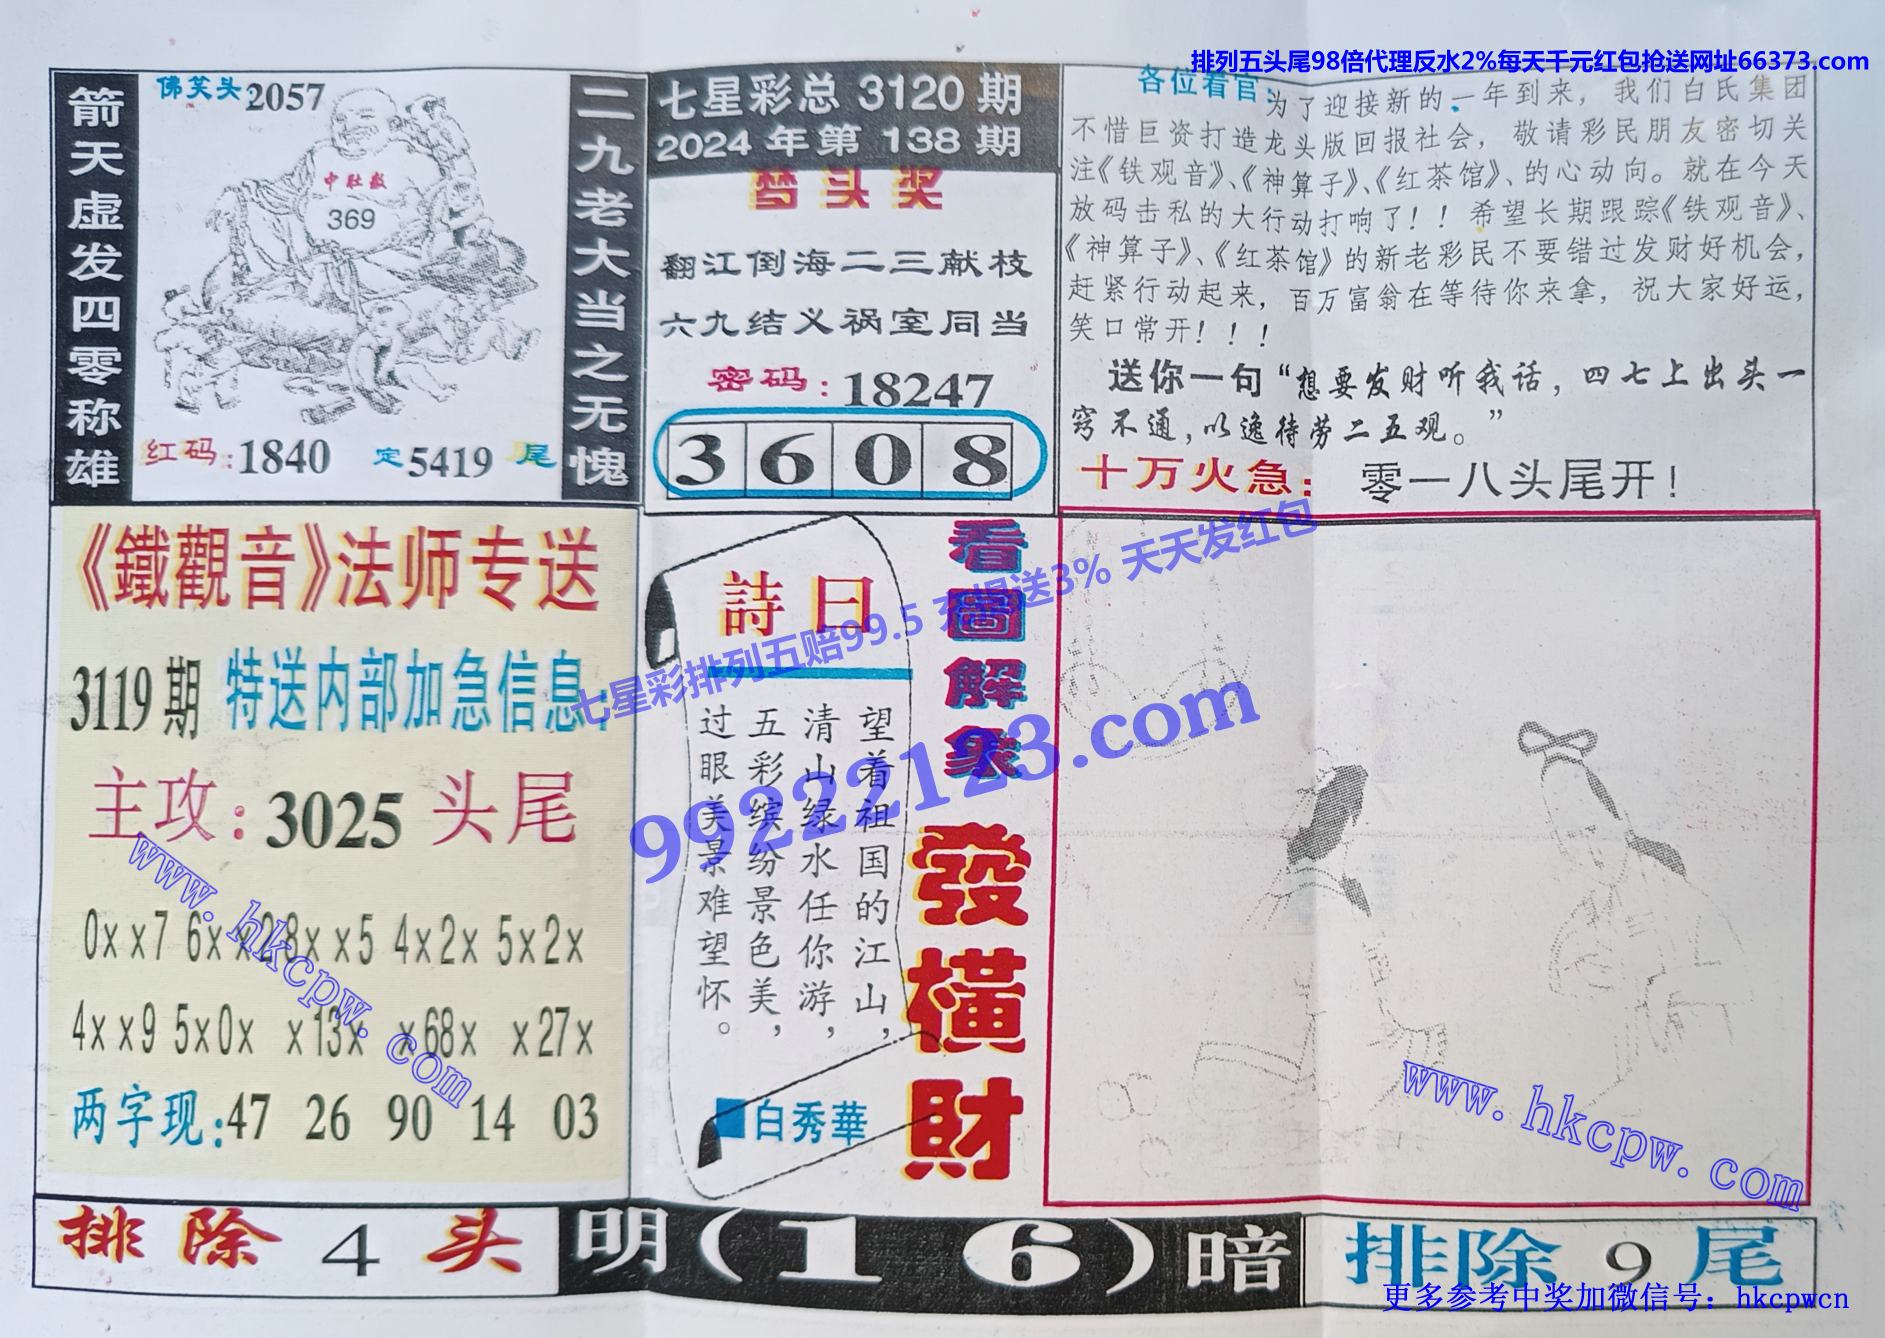 排列五头尾98倍代理反水2%每天千元红包抢送网址66373.com
箭天虚发四零称雄
佛笑头2057
中肚数
369
红码:1840 定5419尾
二九老大当之无愧
七星彩总 3120 期
2024 年第 138 期
梦头奖
翻江倒海二三献枝
六九结义祸室同当
密码:18247
3 6 0 8
各位看官:
为了迎接新的一年到来，我们白氏集团
不惜巨资打造龙头版回报社会，敬请彩民朋友密切关
注《铁观音》、《神算子》、《红茶馆》、的心动向。就在今天
放码击私的大行动打响了！！希望长期跟踪《铁观音》、
《神算子》、《红茶馆》的新老彩民不要错过发财好机会，
赶紧行动起来，百万富翁在等待你来拿，祝大家好运，
笑口常开！！！
送你一句“想要发财听我话，四七上出头一
窍不通，以逸待劳二五观。”
十万火急: 零一八头尾开！
《鐵觀音》法师专送
3119期 特送内部加急信息:
主攻:3025 头尾
0××7 6××2 8××5 4×2× 5×2×
4××9 5×0× ×13× ×68× ×27×
两字现:47 26 90 14 03
詩曰
望着祖国的江山，
清山绿水任你游，
五彩缤纷景色美，
过眼美景难望怀。
■白秀華
看圖解象
發橫財
七星彩排列五赔99.5 充提送3% 天天发红包
99222123.com
www.hkcpw.com
www.hkcpw.com
排除 4 头
明(1 6)暗
排除 9 尾
更多参考中奖加微信号：hkcpwcn